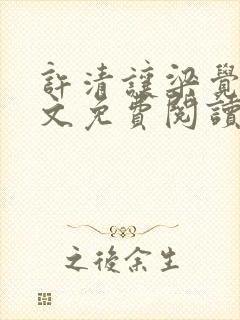 許清讓梁覺
文免費閱讀
之後余生